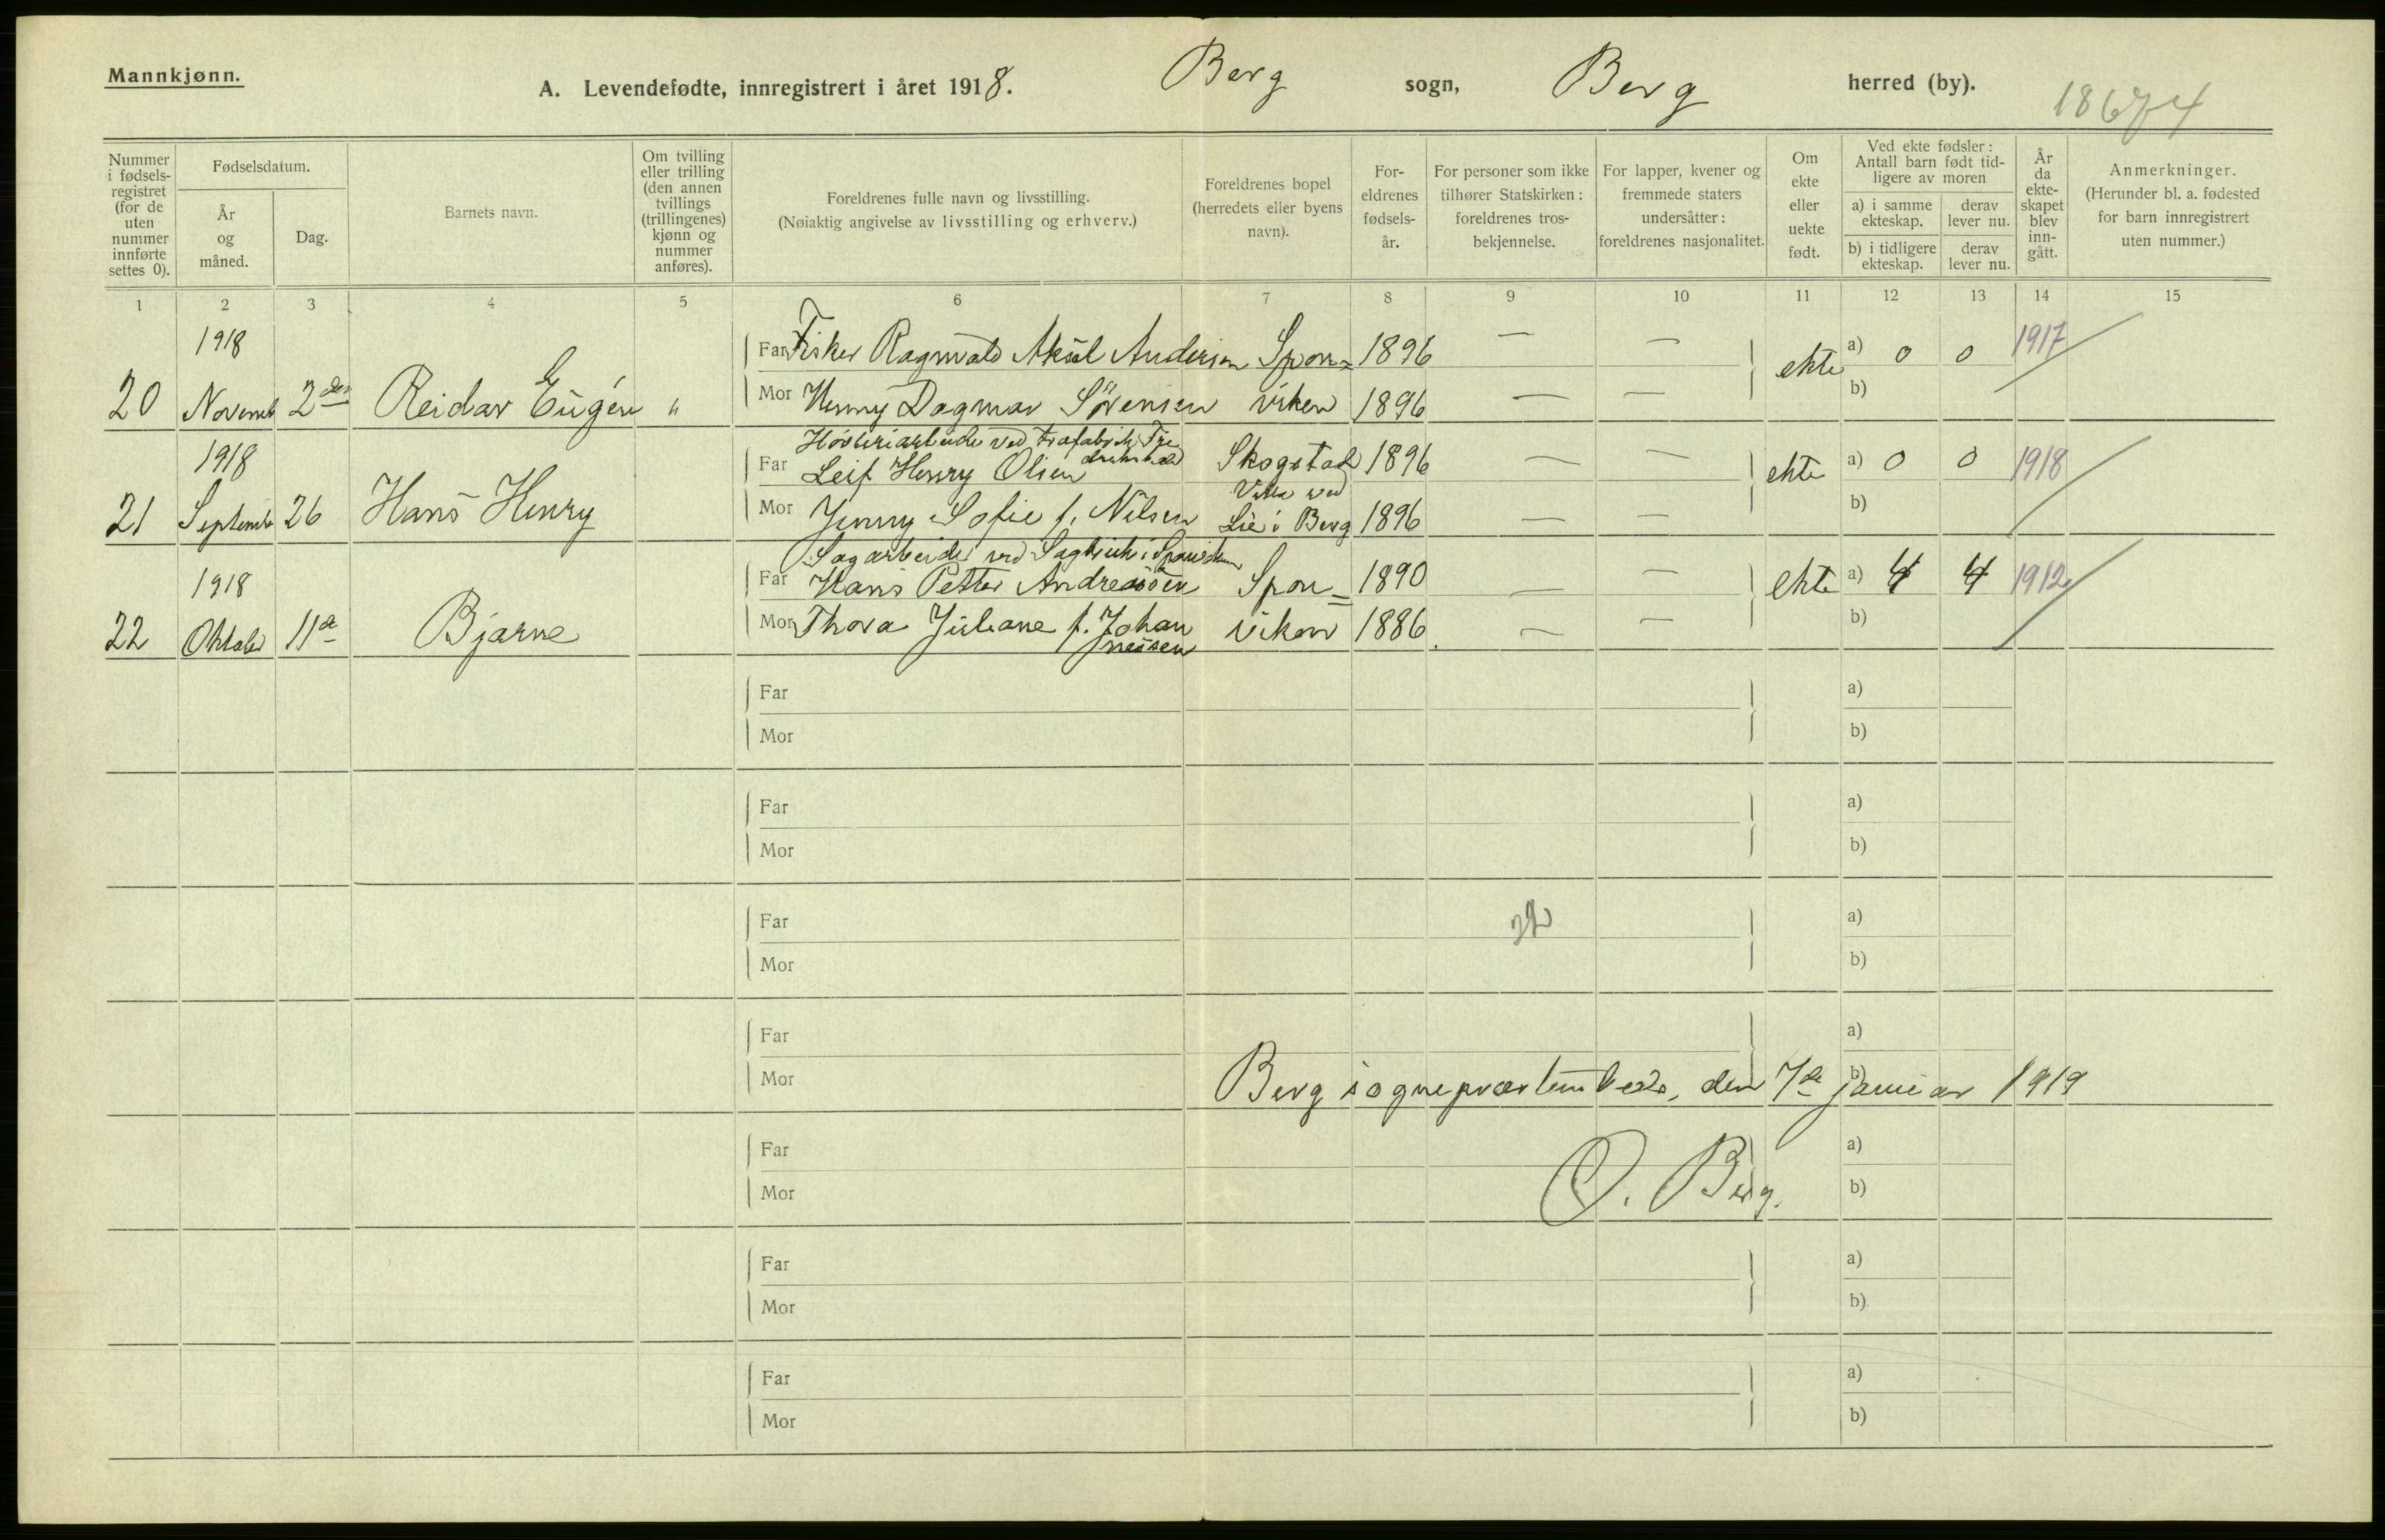 Mannkjønn.
A. Levendefødte, innregistrert i året 1918. Berg sogn, Berg herred (by). 18674
Nummer i fødsels-registret (for de uten nummer innførte settes 0).
Fødselsdatum.
År og måned.
Dag.
Barnets navn.
Om tvilling eller trilling (den annen tvillings (trillingenes) kjønn og nummer anføres).
Foreldrenes fulle navn og livsstilling.
(Nøiaktig angivelse av livsstilling og erhverv.)
Foreldrenes bopel (herredets eller byens navn).
For-eldrenes fødsels-år.
For personer som ikke tilhører Statskirken: foreldrenes tros-bekjennelse.
For lapper, kvener og fremmede staters undersåtter: foreldrenes nasjonalitet.
Om ekte eller uekte født.
Ved ekte fødsler: Antall barn født tid-ligere av moren
a) i samme ekteskap.
derav lever nu.
b) i tidligere ekteskap.
derav lever nu.
År da ekte-skapet blev inn-gått.
Anmerkninger.
(Herunder bl. a. fødested for barn innregistrert uten nummer.)
1 2 3 4 5 6 7 8 9 10 11 12 13 14 15
1918
Far Fisker Ragnvald Aksel Andersen Spon= 1896 — — ekte a) 0 0 1917
20 Novemb 2den Reidar Eugen "
Mor Henny Dagmar Sörensen viken 1896 — — b)
1918
Far Leif Henry Olsen Skogstad 1896 — — ekte a) 0 0 1918
Villa ved
21 Septembr 26 Hans Henry
Mor Jenny Sofie f. Nilsen Lie i Berg 1896 — — b)
Sagarbeider ved Sagbruk i Sponviken
1918
Far Hans Petter Andreassen Spon= 1890 — — ekte a) 4 4 1912
22 Oktober 11te Bjarne
Mor Thora Juliane f. Johannessen viken 1886. — — b)
Far a)
Mor b)
Far a)
Mor b)
Far a)
Mor b)
Far a)
Mor b)
Berg sogneprestembede, den 7de januar 1919
Far a)
O. Berg.
Mor b)
Far a)
Mor b)
Far a)
Mor b)